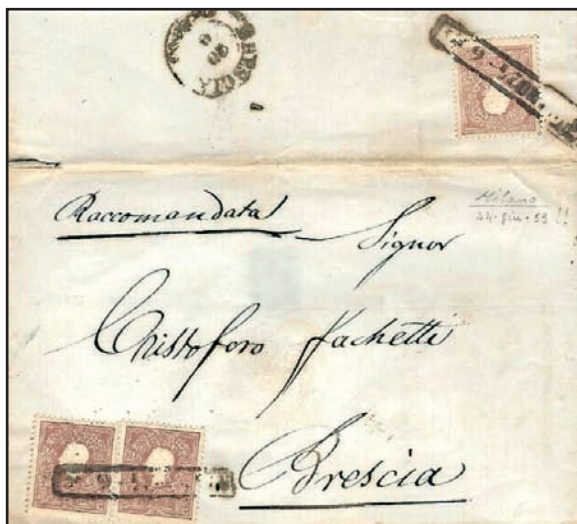 BRESCIA
Raccomandata
Milano
Signor
Cristoforo Fachetti
Brescia